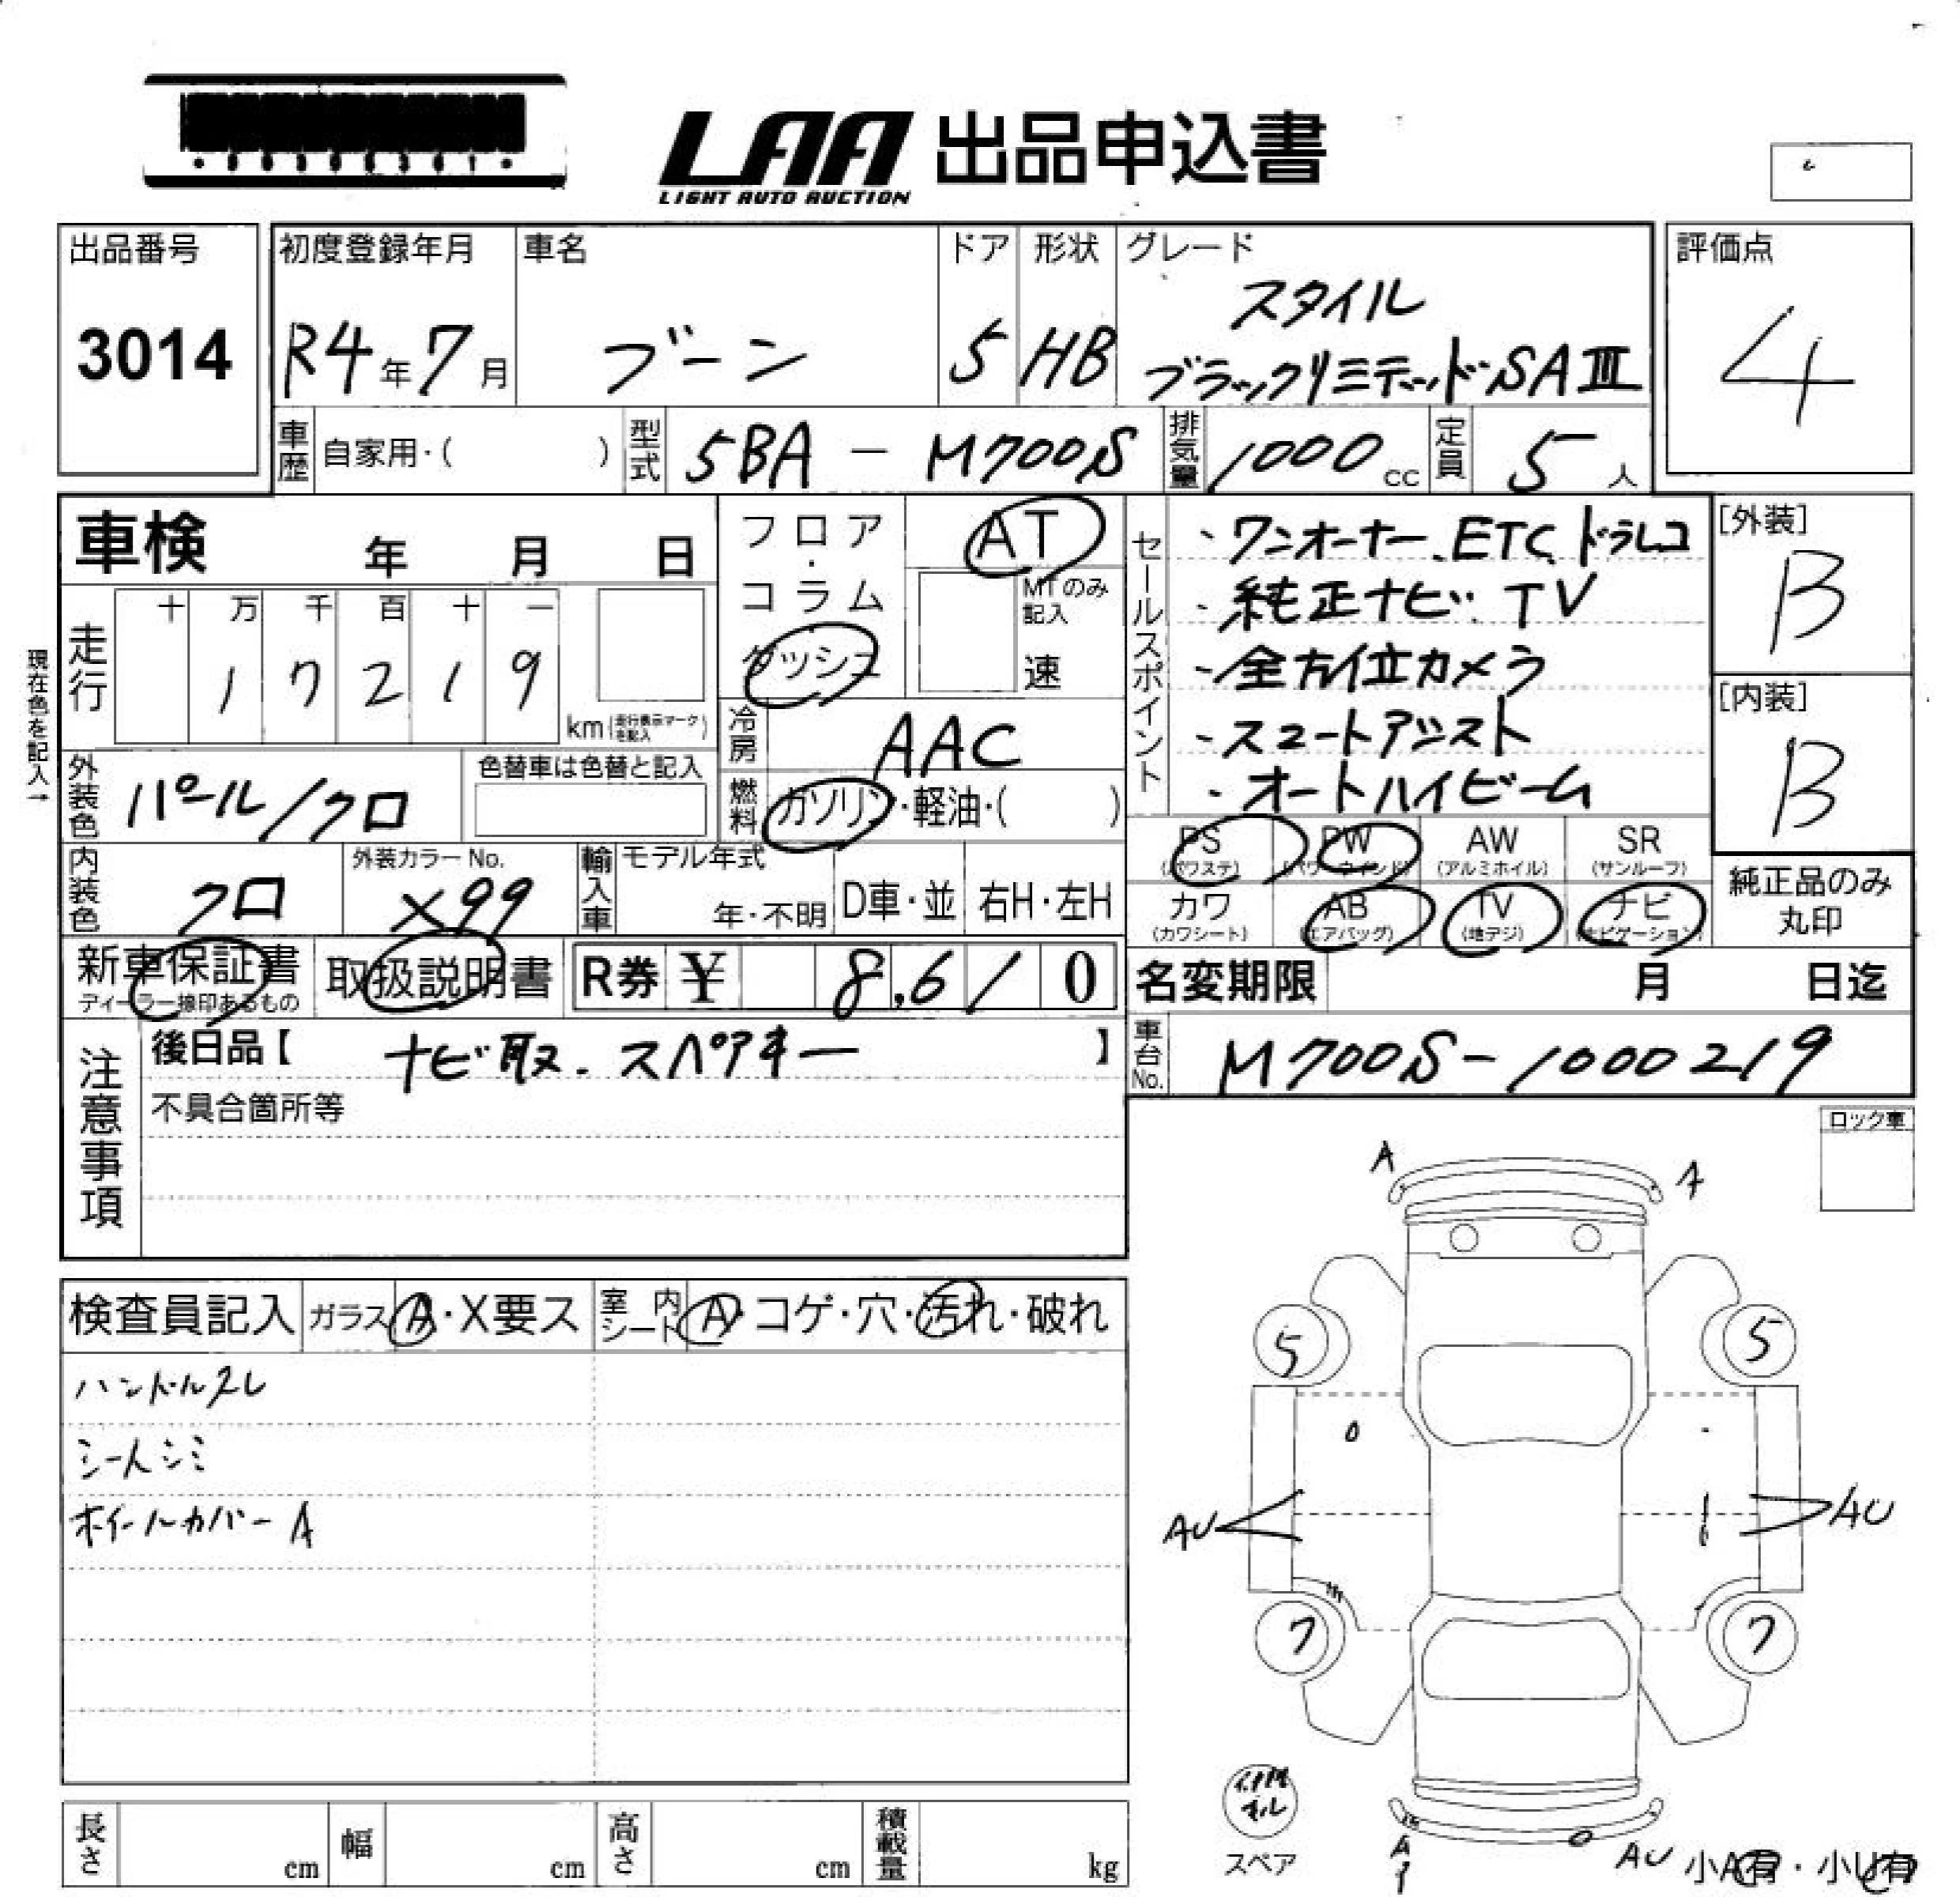 LAA 出品申込書
LIGHT AUTO AUCTION
出品番号
3014
初度登録年月
R4年7月
車名
ブーン
ドア
5
形状
HB
グレード
スタイル
ブラックリミテッドSAⅢ
評価点
4
車歴 自家用・( )
型式 5BA-M700S
排気量 1000cc
定員 5人
車検 年 月 日
フロア・コラム
ダッシュ
AT
MTのみ記入
速
現在色を記入→
走行
十 万 千 百 十 一
1 7 2 1 9
km(走行表示マークを記入)
冷房 AAC
外装色 パール/クロ
色替車は色替と記入
燃料 ガソリン・軽油・( )
セールスポイント
・ワンオーナー、ETC、ドラレコ
・純正ナビ、TV
・全方位カメラ
・スマートアシスト
・オートハイビーム
[外装]
B
[内装]
B
PS (パワステ)
PW (パワーウインド)
AW (アルミホイル)
SR (サンルーフ)
カワ (カワシート)
AB (エアバッグ)
TV (地デジ)
ナビ (ナビゲーション)
純正品のみ丸印
内装色 クロ
外装カラーNo.
X99
輸入車
モデル年式
年・不明
D車・並
右H・左H
新車保証書
ディーラー捺印あるもの
取扱説明書
R券 ¥ 8,610
名変期限 月 日迄
注意事項
後日品【 ナビ取、スペアキー 】
不具合箇所等
車台No. M700S-1000219
ロック車
検査員記入
ガラス A・X要ス
室内シート A・コゲ・穴・汚れ・破れ
ハンドルスレ
シートシミ
ホイールカバーA
A
A
5
5
AU
AU
7
7
スペア
A
AU
小A有・小U有
長さ cm
幅 cm
高さ cm
積載量 kg